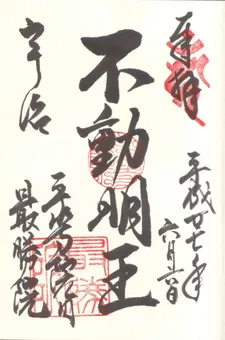 奉拝
平成廿七年
六月六日
不動明王
宇治
平等院
最勝院